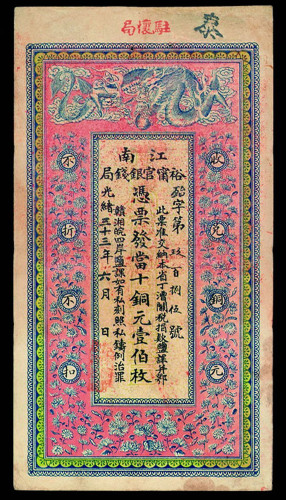 駐懷局
江南
裕甯官銀錢局
收兌銅元
字第 玖百捌伍號
此票准交納本省丁漕關稅捐款鹽課并鄂
憑票發當十銅元壹佰枚
贛湘皖四岸鹽課如有私刻照私鑄例治罪
光緒三十三年六月 日
不折不扣